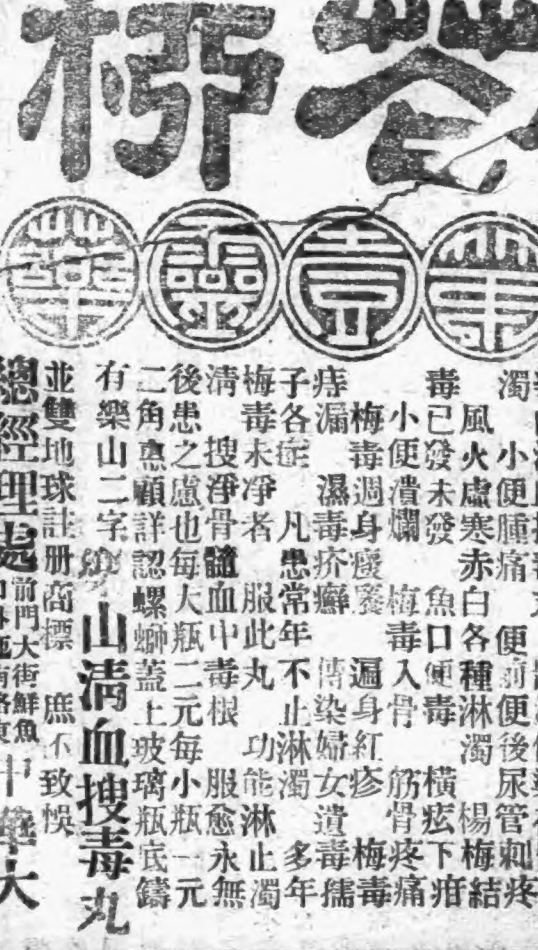 花柳
第壹靈藥
濁　小便腫痛　便前便後尿管刺疼
風火虛寒赤白各種淋濁　楊梅結
毒已發未發　魚口便毒　橫痃下疳
小便潰爛　梅毒入骨　筋骨疼痛
梅毒週身　遍身紅疹　梅毒
痔漏　濕毒疥癬　傳染婦女遺毒孺
子各症　凡患常年不止淋濁　多年
梅毒未凈者　服此丸　功能淋止濁
清　搜淨骨髓血中毒根　服愈永無
後患之慮也每大瓶二元每小瓶一元
二角惠顧詳認螺螄蓋上玻璃瓶底鑄
有樂山二字
樂山清血搜毒丸
並雙地球註册商標　庶不致悞
總經理處
前門大街鮮魚
南路東
中華大